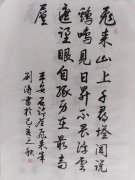 飛来山上千尋塔聞説
鷄鳴見日昇不畏浮雲
遮望眼自緣身在最高
層
王安石詩登飛来峰
劉濤書於己亥之秋